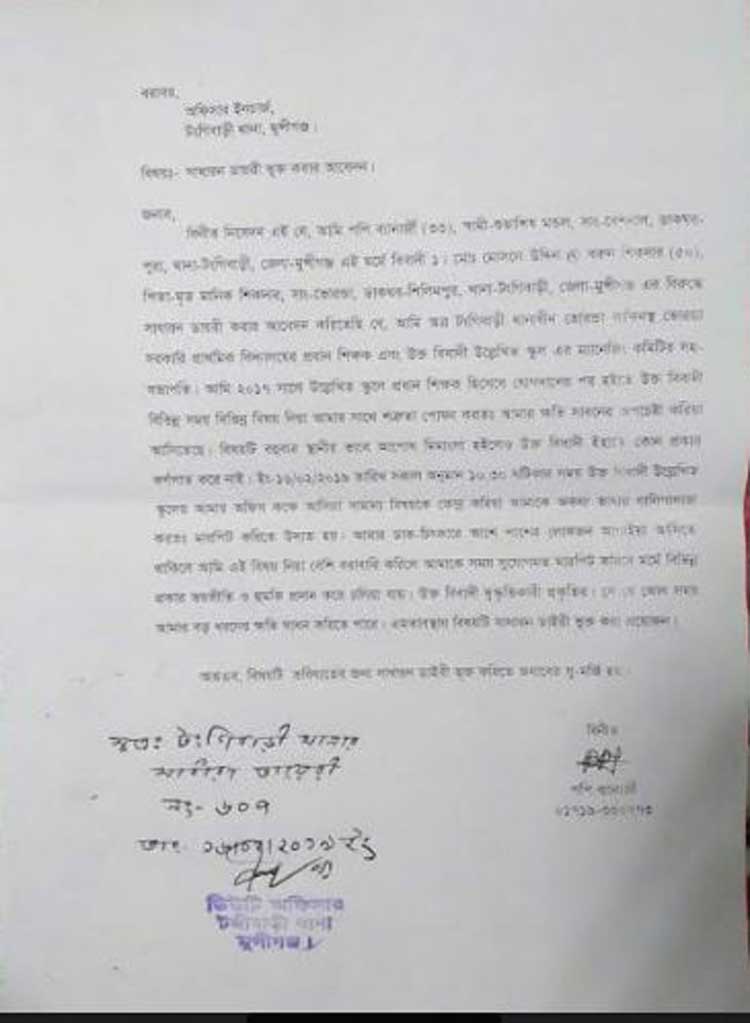 বরাবর,
অফিসার ইনচার্জ,
টংগিবাড়ী থানা, মুন্সীগঞ্জ।
বিষয়ঃ- সাধারন ডায়রী ভুক্ত করার আবেদন।
জনাব,
বিনীত নিবেদন এই যে, আমি পপি ব্যানার্জী (৩৩), স্বামী- মন্ডল, সাং- ডাকঘর-
পুরা, থানা-টংগিবাড়ী, জেলা-মুন্সীগঞ্জ এই মর্মে বিবাদী ১। মোঃ উদ্দিন শিকদার (৫০),
পিতা-মৃত মানিক শিকদার, সাং- ডাকঘর- থানা-টংগিবাড়ী, জেলা-মুন্সীগঞ্জ এর বিরুদ্ধে
সাধারন ডায়রী করার আবেদন করিতেছি যে, আমি অত্র টংগিবাড়ী থানাধীন
সরকারি প্রাথমিক বিদ্যালয়ের প্রধান শিক্ষক এবং উক্ত বিবাদী উল্লেখিত স্কুল এর ম্যানেজিং কমিটির সহ-
সভাপতি। আমি ২০১৭ সালে উল্লেখিত স্কুলে প্রধান শিক্ষক হিসেবে যোগদানের পর হইতে উক্ত বিবাদী
বিভিন্ন সময় বিভিন্ন বিষয় নিয়া আমার সাথে শত্রুতা পোষন করতঃ আমার ক্ষতি সাধনের অপচেষ্টা করিয়া
আসিতেছে। বিষয়টি বহুবার স্থানীয় ভাবে আপোষ মিমাংসা হইলেও উক্ত বিবাদী ইহাতে কোন প্রকার
কর্ণপাত করে নাই। ইং- তারিখ সকাল অনুমান ১০.৩০ ঘটিকার সময় উক্ত বিবাদী উল্লেখিত
স্কুলের আমার অফিস কক্ষে আসিয়া সামান্য বিষয়কে কেন্দ্র করিয়া আমাকে অকথ্য ভাষায় গালিগালাজ
করতঃ মারপিট করিতে উদ্যত হয়। আমার ডাক-চিৎকারে আশে পাশের লোকজন আগাইয়া আসিতে
থাকিলে আমি এই বিষয় নিয়া বেশি বারাবারি করিলে আমাকে সময় সুযোগমত মারপিট করিবে মর্মে বিভিন্ন
প্রকার ভয়ভীতি ও হুমকি প্রদান করে চলিয়া যায়। উক্ত বিবাদী প্রকৃতির। সে যে কোন সময়
আমার বড় ধরনের ক্ষতি সাধন করিতে পারে। এমতাবস্থায় বিষয়টি সাধারন ডাইরী ভুক্ত করা প্রয়োজন।
অতএব, বিষয়টি ভবিষ্যতের জন্য সাধারন ডাইরী ভুক্ত করিতে জনাবের সু-মর্জি হয়।
সূত্রঃ টংগিবাড়ী থানার
বিনীত
ডায়েরী
পপি ব্যানার্জী
নং- ৬০৭
তাং-
ডিউটি অফিসার
টংগীবাড়ী থানা
মুন্সীগঞ্জ।